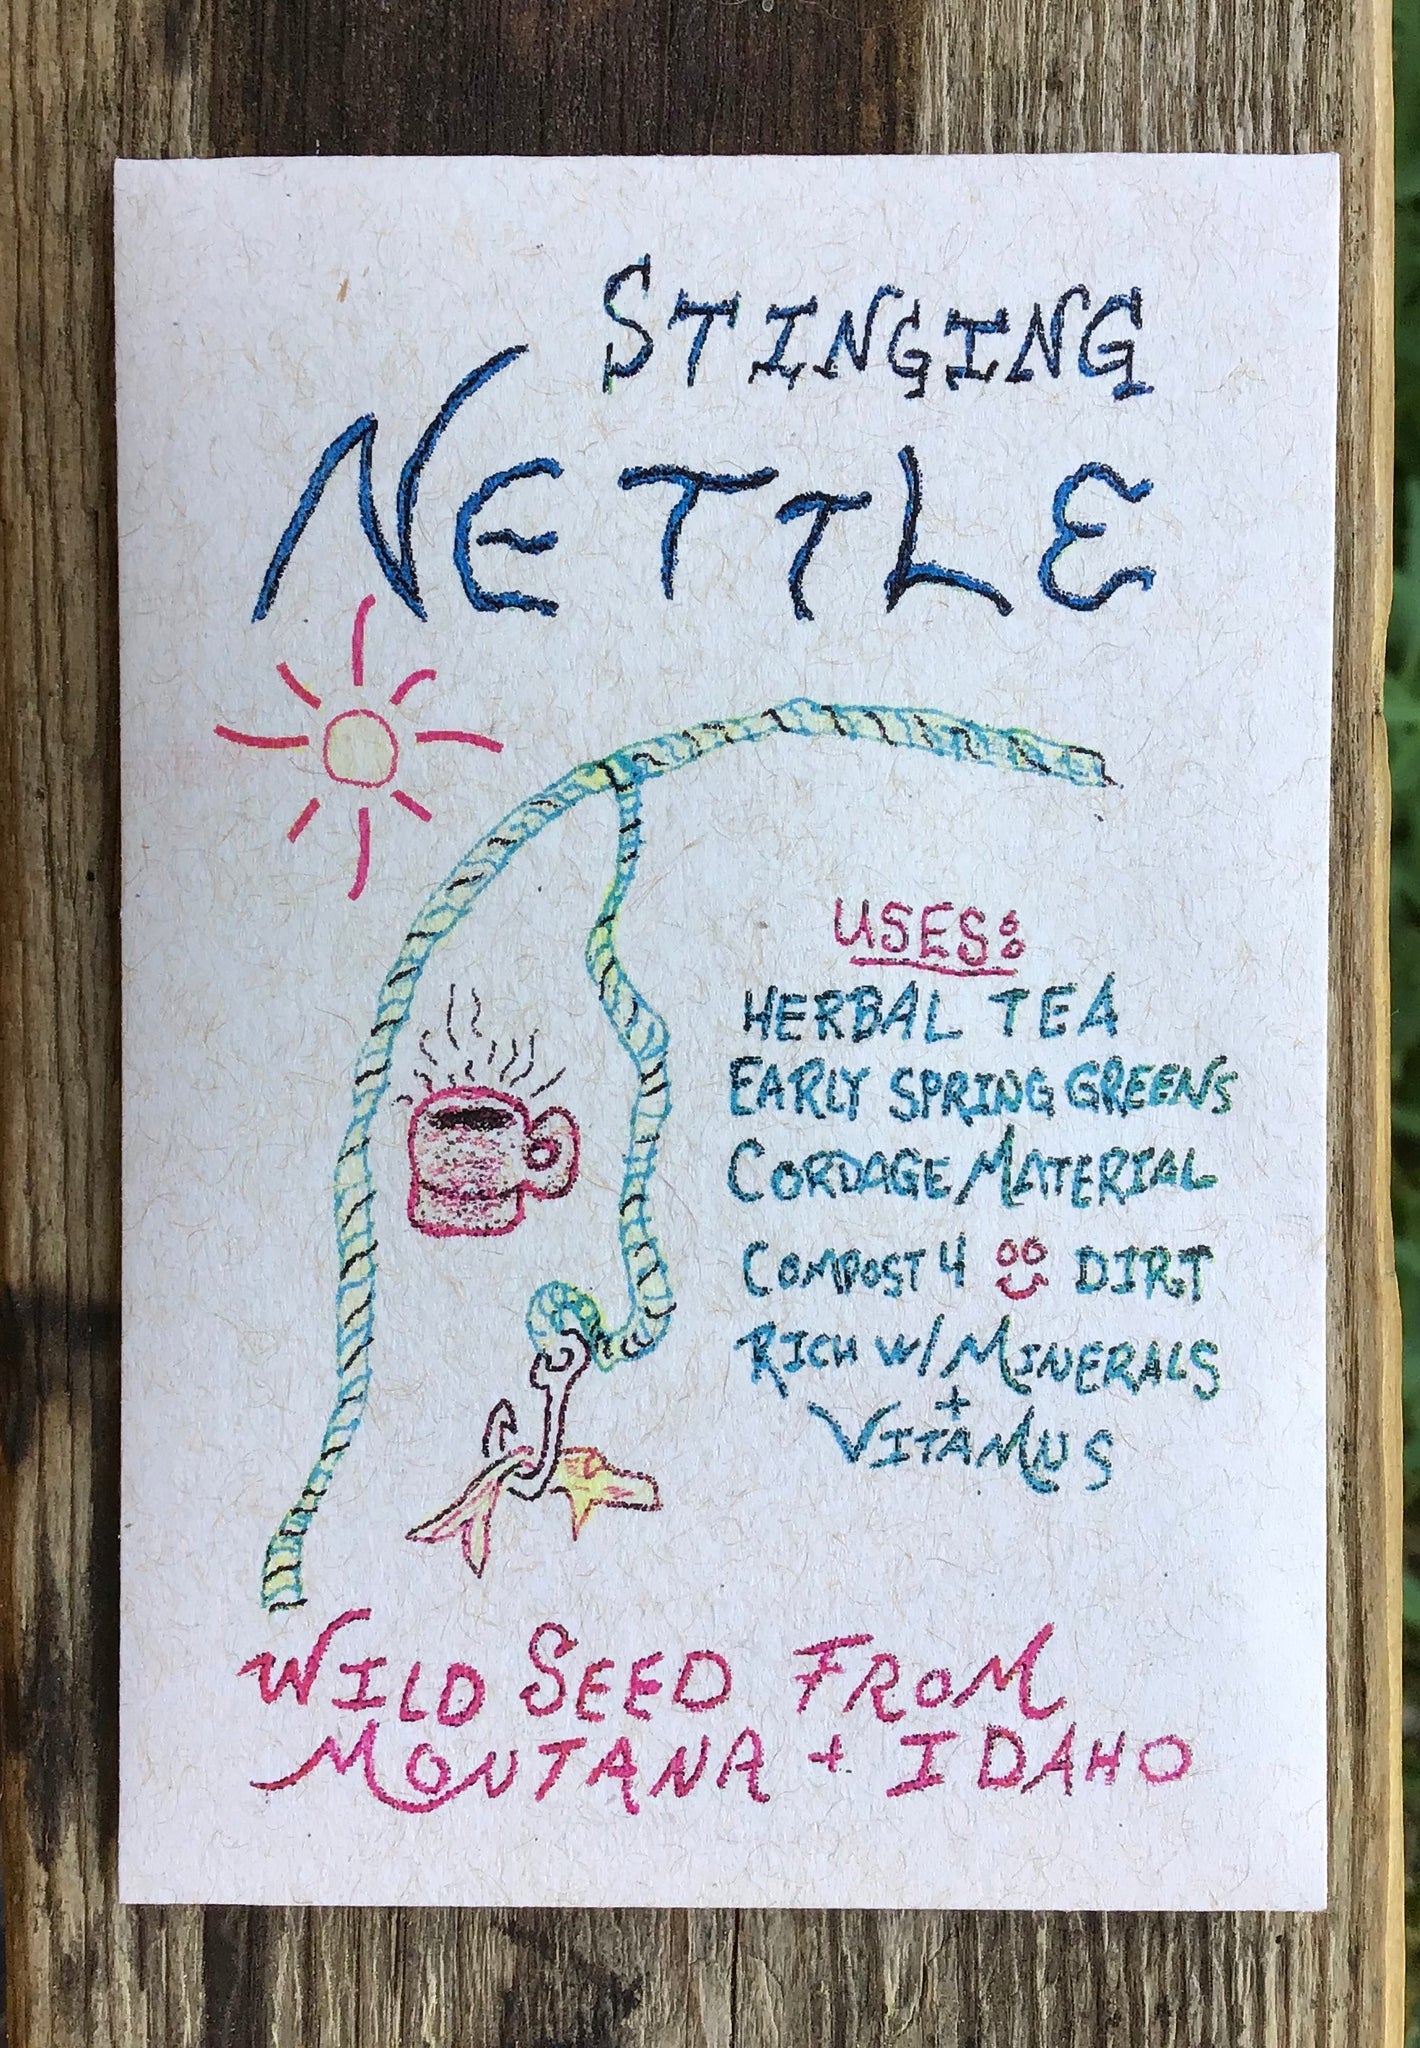 STINGING
NETTLE
USES:
HERBAL TEA
EARLY SPRING GREENS
CORDAGE MATERIAL
COMPOST 4 DIRT
RICH W/ MINERALS
+
VITAMUS
WILD SEED FROM
MONTANA + IDAHO